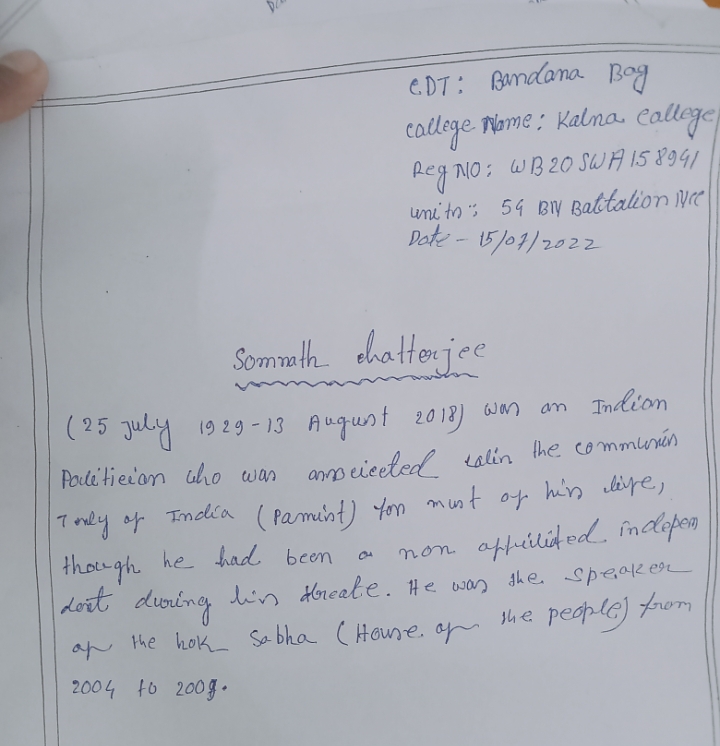 CDT: Bandana Bag
callege Name: Kalna callege
Reg NO: WB20SWA158941
units: 54 BN Battalion NCC
Date - 15/07/2022
Somnath chatterjee
(25 July 1929-13 August 2018) was an Indian
Politician who was the communis
of India ( ) for must of his life,
though he had been a non affilited indepen
dent during his. He was the speaker
of the Lok Sabha (House of the people) from
2004 to 2009.